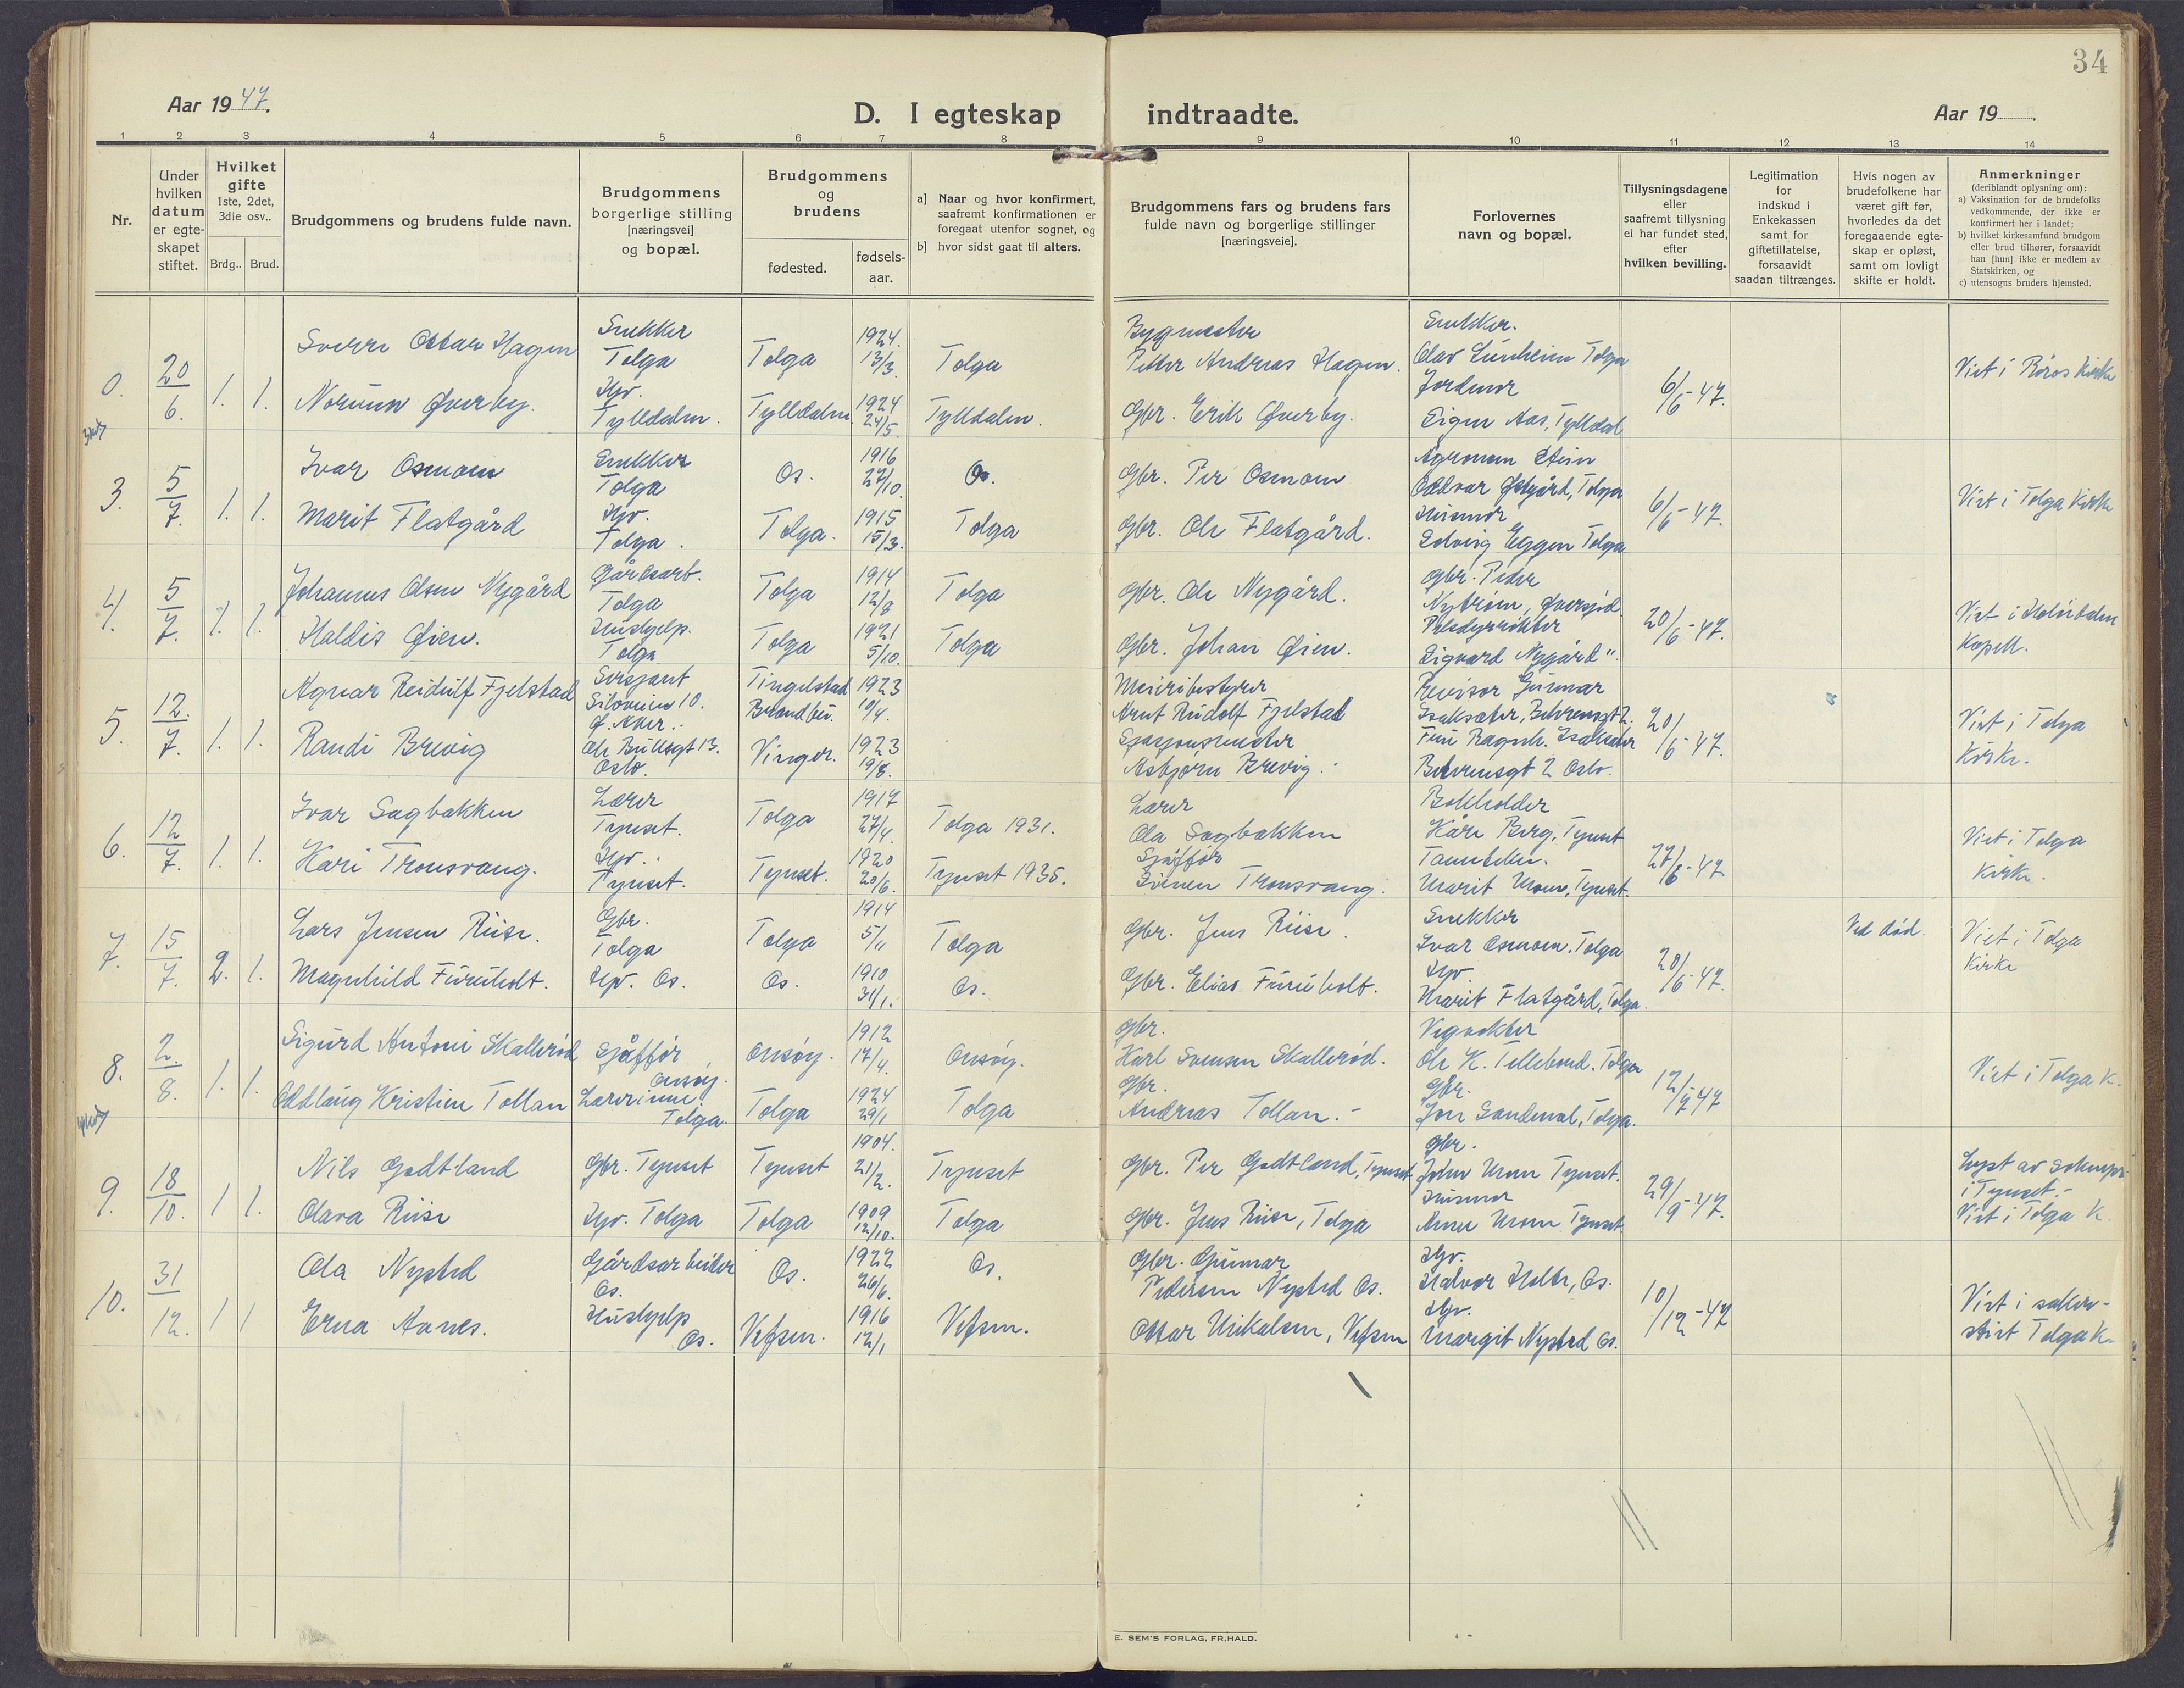 34
Aar 1947.
D. I egteskap indtraadte.
Aar 19 .
1 2 3 4 5 6 7 8 9 10 11 12 13 14
Nr.
Under hvilken datum er egte-skapet stiftet.
Hvilket gifte 1ste, 2det, 3die osv..
Brdg.. Brud.
Brudgommens og brudens fulde navn.
Brudgommens borgerlige stilling [næringsvei] og bopæl.
Brudgommens og brudens
fødested.
fødsels-aar.
a) Naar og hvor konfirmert, saafremt konfirmationen er foregaat utenfor sognet, og
b) hvor sidst gaat til alters.
Brudgommens fars og brudens fars fulde navn og borgerlige stillinger [næringsveie].
Forlovernes navn og bopæl.
Tillysningsdagene eller saafremt tillysning ei har fundet sted, efter hvilken bevilling.
Legitimation for indskud i Enkekassen samt for giftetillatelse, forsaavidt saadan tiltrænges.
Hvis nogen av brudefolkene har været gift før, hvorledes da det foregaaende egte-skap er opløst, samt om lovligt skifte er holdt.
Anmerkninger (deriblandt oplysning om):
a) Vaksination for de brudefolks vedkommende, der ikke er konfirmert her i landet;
b) hvilket kirkesamfund brudgom eller brud tilhører, forsaavidt han [hun] ikke er medlem av Statskirken, og
c) utensogns bruders hjemsted.
0. 20/6. 1. 1.
Sverre Ottar Hagen
Snekker Tolga
Tolga
1924. 13/3.
Tolga
Bygmester Petter Andreas Hagen.
Snekker. Olav Sunheim Tolga
6/6-47.
Viet i Røros Kirke
Norunn Øverby.
Hv. Tylldalen.
Tylldalen
1924 24/5.
Tylldalen.
Gbr. Erik Øverby.
Jordmor Eigen Aas, Tylldal
3. 5/7. 1. 1.
Ivar Osmoen
Snekker Tolga
Os.
1916 27/10.
Os.
Gbr. Per Osmoen
Agronom Stein Oddvar Østgård, Tolga
6/6-47.
Viet i Tolga Kirke
Marit Flatgård
Hv. Tolga.
Tolga.
1915 15/3.
Tolga
Gbr. Ole Flatgård.
Husmor Solveig Eggen Tolga
4. 5/7. 1. 1.
Johannes Olsen Nygård
Gårdsarb. Tolga
Tolga
1914 12/8
Tolga
Gbr. Ole Nygård.
Gbr. Peder Nytrøen, Øversjød.
20/6-47.
Viet i Holøydalen Kapell.
Haldis Øien.
Hushjelp. Tolga
Tolga
1921 5/10.
Tolga
Gbr. Johan Øien.
Pelsdyrrøkter Sigvard Nygård ".
5. 12./7. 1. 1.
Agnar Reidulf Fjelstad
Sersjant Siloveien 10. Ø. Aker.
Tingelstad Brandbu.
1923 10/4.
Meieribestyrer Arnt Rudolf Fjelstad
Revisor Gunnar Isaksæter, Behrensgt 2.
20/6-47.
Viet i Tolga Kirke.
Randi Brevig
Ole Bullsgt 13. Oslo.
Vinger.
1923 19/8.
Asbjørn Brevig.
Fru Ragnh. Isaksæter Behrensgt 2 Oslo.
6. 12/7. 1. 1.
Ivar Sagbakken
Lærer Tynset.
Tolga
1917 27/4.
Tolga 1931.
Lærer Ola Sagbakken
Bokholder Kåre Berg, Tynset
27/6-47
Viet i Tolga Kirke.
Kari Tronsvang.
Hv. Tynset.
Tynset.
1920 20/6.
Tynset 1935.
Sjåffør Tronsvang.
Marit Moen, Tynset.
7. 15/7. 2. 1.
Lars Jensen Riise.
Gbr. Tolga
Tolga
1914 5/11
Tolga
Gbr. Jens Riise.
Snekker Ivar Osmoen. Tolga
20/6-47.
Ved død.
Viet i Tolga Kirke
Magnhild Furuholt.
Hv. Os.
Os.
1910 31/1.
Os.
Gbr. Elias Furuholt.
Hv. Marit Flatgård, Tolga.
8. 2./8. 1. 1.
Sigurd Antoni Skallerød
Sjåffør, Onsøy.
Onsøy.
1912 17/4.
Onsøy.
Gbr. Karl Svensen Skallerød.
Vegvokter Ole K. Tellebond. Tolga
12/7-47
Viet i Tolga K.
Oddlaug Kristine Tollan
Lærerinne Tolga.
Tolga
1924 29/1
Tolga
Gbr. Andreas Tollan.-
Gbr. Jon Sandmæl, Tolga.
9. 18/10. 1 1.
Nils Godtland
Gbr. Tynset
Tynset
1904. 21/2.
Tynset
Gbr. Per Godtland, Tynset
Gbr. John Moen Tynset.
29/9-47.
Lyst av soknepr. i Tynset.- Viet i Tolga K.
Olava Riise
Hv. Tolga
Tolga
1909 12/10.
Tolga
Gbr. Jens Riise, Tolga
Husmor Anne Moen Tynset.
10. 31/12. 1 1
Ola Nysted
Gårdsarbeider Os.
Os.
1922 26/6.
Os.
Gbr. Gunnar Pedersen Nysted Os.
Hv. Halvor Holte, Os.
10/12-47
Viet i sakri-stiet Tolga K.
Erna Aanes.
Hushjelp Os.
Vefsen.
1916 12/1
Vefsen.
Ottar Unikalsen, Vefsen
Hv. Margit Nysted Os.
E. SEM'S FORLAG, FR.HALD.